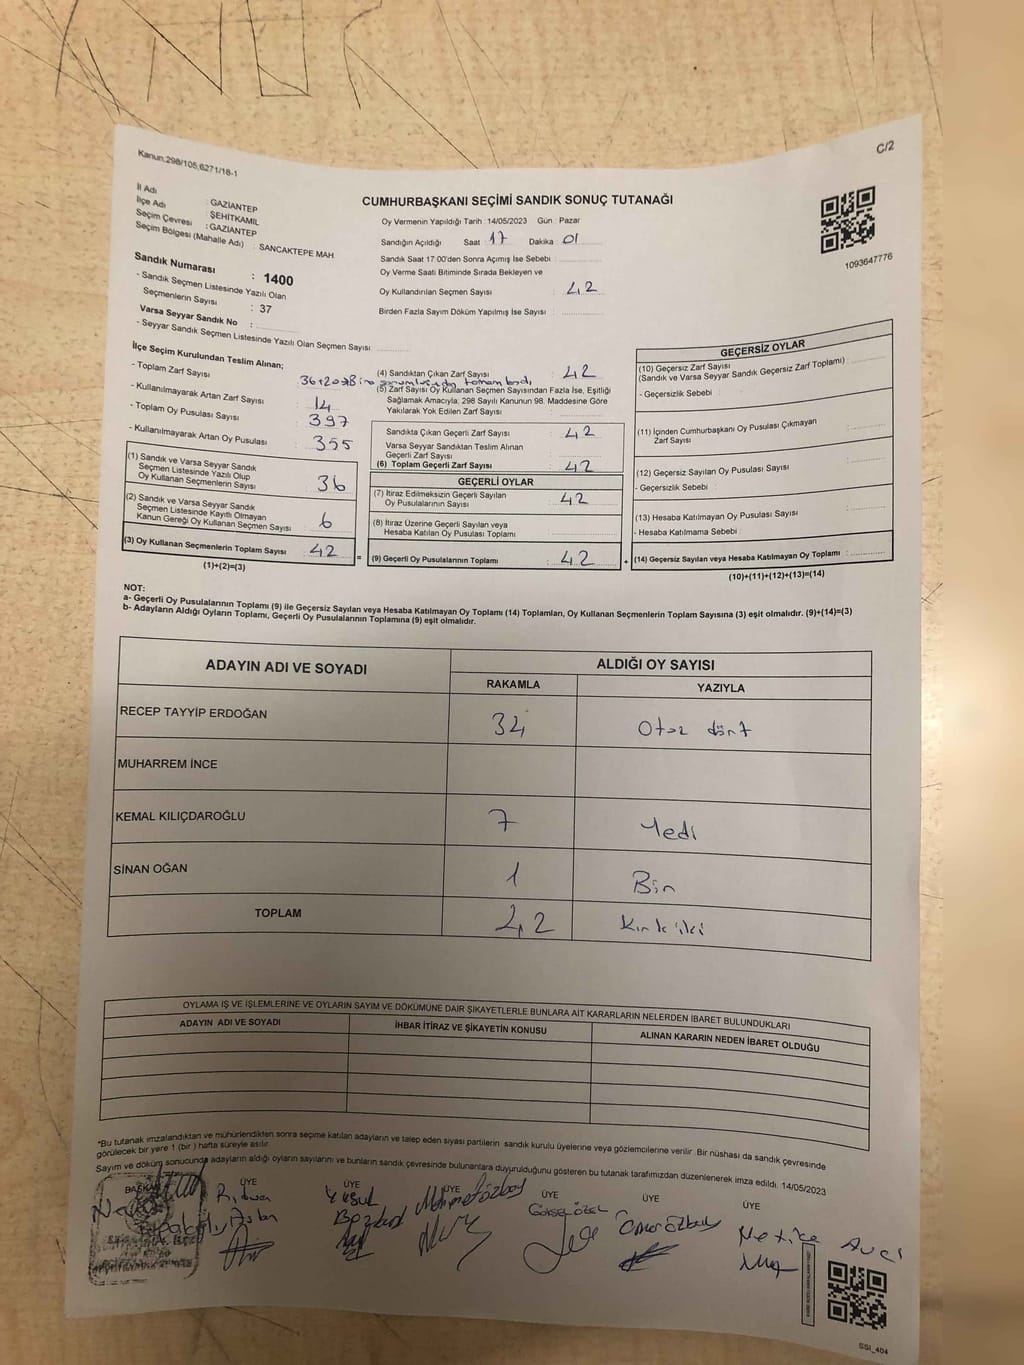 Kanun.298/105,6271/18-1
C/2
İl Adı : GAZIANTEP
İlçe Adı : ŞEHİTKAMİL
Seçim Çevresi : GAZIANTEP
Seçim Bölgesi (Mahalle Adı) : SANCAKTEPE MAH.
Sandık Numarası : 1400
- Sandık Seçmen Listesinde Yazılı Olan
Seçmenlerin Sayısı : 37
Varsa Seyyar Sandık No :
- Seyyar Sandık Seçmen Listesinde Yazılı Olan Seçmen Sayısı:
CUMHURBAŞKANI SEÇİMİ SANDIK SONUÇ TUTANAĞI
Oy Vermenin Yapıldığı Tarih : 14/05/2023 Gün : Pazar
Sandığın Açıldığı Saat : 17 Dakika : 01
Sandık Saat 17:00'den Sonra Açılmış İse Sebebi :
Oy Verme Saati Bitiminde Sırada Bekleyen ve
Oy Kullandırılan Seçmen Sayısı : 42
Birden Fazla Sayım Döküm Yapılmış İse Sayısı :
1093647776
İlçe Seçim Kurulundan Teslim Alınan;
- Toplam Zarf Sayısı
- Kullanılmayarak Artan Zarf Sayısı : 14
- Toplam Oy Pusulası Sayısı : 397
- Kullanılmayarak Artan Oy Pusulası : 355
(1) Sandık ve Varsa Seyyar Sandık
Seçmen Listesinde Yazılı Olup
Oy Kullanan Seçmenlerin Sayısı : 36
(2) Sandık ve Varsa Seyyar Sandık
Seçmen Listesinde Kayıtlı Olmayan
Kanun Gereği Oy Kullanan Seçmen Sayısı : 6
(3) Oy Kullanan Seçmenlerin Toplam Sayısı : 42
(1)+(2)=(3)
(4) Sandıktan Çıkan Zarf Sayısı : 42
(5) Zarf Sayısı Oy Kullanan Seçmen Sayısından Fazla İse, Eşitliği
Sağlamak Amacıyla; 298 Sayılı Kanunun 98. Maddesine Göre
Yakılarak Yok Edilen Zarf Sayısı :
Sandıkta Çıkan Geçerli Zarf Sayısı : 42
Varsa Seyyar Sandıktan Teslim Alınan
Geçerli Zarf Sayısı :
(6) Toplam Geçerli Zarf Sayısı : 42
GEÇERLİ OYLAR
(7) İtiraz Edilmeksizin Geçerli Sayılan
Oy Pusulalarının Sayısı : 42
(8) İtiraz Üzerine Geçerli Sayılan veya
Hesaba Katılan Oy Pusulası Toplamı :
= (9) Geçerli Oy Pusulalarının Toplamı : 42
GEÇERSİZ OYLAR
(10) Geçersiz Zarf Sayısı
(Sandık ve Varsa Seyyar Sandık Geçersiz Zarf Toplamı) :
- Geçersizlik Sebebi :
(11) İçinden Cumhurbaşkanı Oy Pusulası Çıkmayan
Zarf Sayısı :
(12) Geçersiz Sayılan Oy Pusulası Sayısı :
- Geçersizlik Sebebi :
(13) Hesaba Katılmayan Oy Pusulası Sayısı :
- Hesaba Katılmama Sebebi :
+ (14) Geçersiz Sayılan veya Hesaba Katılmayan Oy Toplamı :
(10)+(11)+(12)+(13)=(14)
NOT:
a- Geçerli Oy Pusulalarının Toplamı (9) ile Geçersiz Sayılan veya Hesaba Katılmayan Oy Toplamı (14) Toplamları, Oy Kullanan Seçmenlerin Toplam Sayısına (3) eşit olmalıdır. (9)+(14)=(3)
b- Adayların Aldığı Oyların Toplamı, Geçerli Oy Pusulalarının Toplamına (9) eşit olmalıdır.
ADAYIN ADI VE SOYADI
ALDIĞI OY SAYISI
RAKAMLA YAZIYLA
RECEP TAYYİP ERDOĞAN 34 Otuz dört
MUHARREM İNCE
KEMAL KILIÇDAROĞLU 7 Yedi
SİNAN OĞAN 1 Bir
TOPLAM 42 Kırk iki
OYLAMA İŞ VE İŞLEMLERİNE VE OYLARIN SAYIM VE DÖKÜMÜNE DAİR ŞİKAYETLERLE BUNLARA AİT KARARLARIN NELERDEN İBARET BULUNDUKLARI
ADAYIN ADI VE SOYADI İHBAR İTİRAZ VE ŞİKAYETİN KONUSU ALINAN KARARIN NEDEN İBARET OLDUĞU
*Bu tutanak imzalandıktan ve mühürlendikten sonra seçime katılan adayların ve talep eden siyasi partilerin sandık kurulu üyelerine veya gözlemcilerine verilir. Bir nüshası da sandık çevresinde
görülecek bir yere 1 (bir) hafta süreyle asılır.
Sayım ve döküm sonucunda adayların aldığı oyların sayılarını ve bunların sandık çevresinde bulunanlara duyurulduğunu gösteren bu tutanak tarafımızdan düzenlenerek imza edildi. 14/05/2023
BAŞKAN ÜYE ÜYE ÜYE ÜYE ÜYE ÜYE
Rıdvan Aslan
Yusuf
Mehmet Özbay
GÖKSEL ÖZEL
Ömer Özbay
Netice Avcı
SSI_404